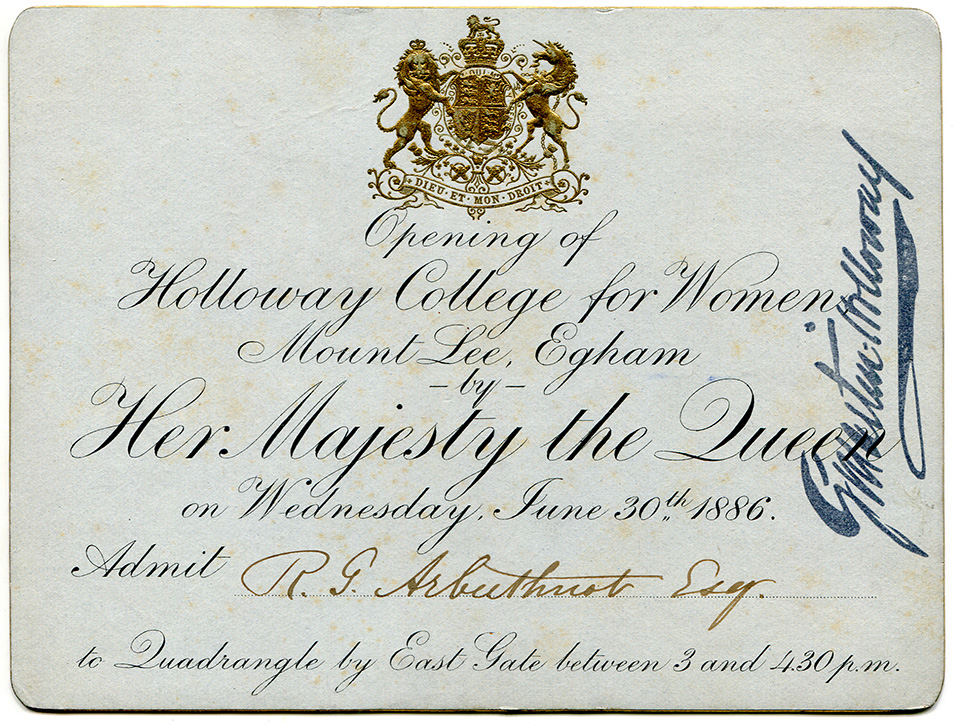 DIEU · ET · MON · DROIT
Opening of
Holloway College for Women
Mount Lee, Egham
– by –
Her Majesty the Queen
on Wednesday, June 30th 1886.
Admit R. G. Arbuthnot Esq.
to Quadrangle by East Gate between 3 and 4.30 p.m.
G Martin-Holloway